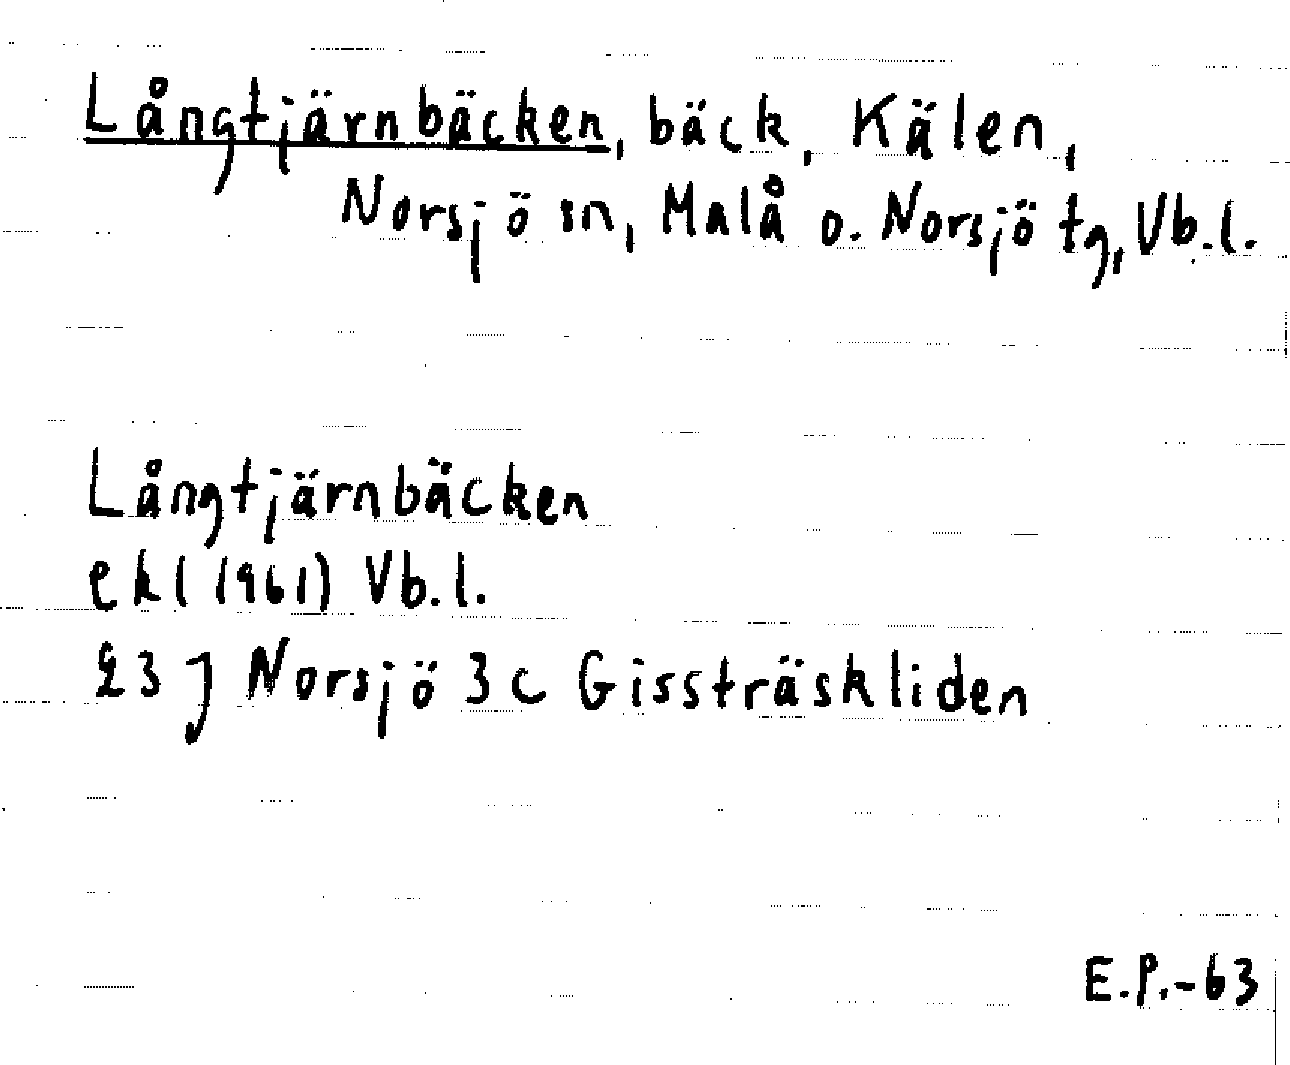 Långtjärnbäcken, bäck, Kälen,
Norsjö sn, Malå o. Norsjö tg, Vb.l.
Långtjärnbäcken
ekl (1961) Vb.l.
23 J Norsjö 3 c Gissträskliden
E.P.-63